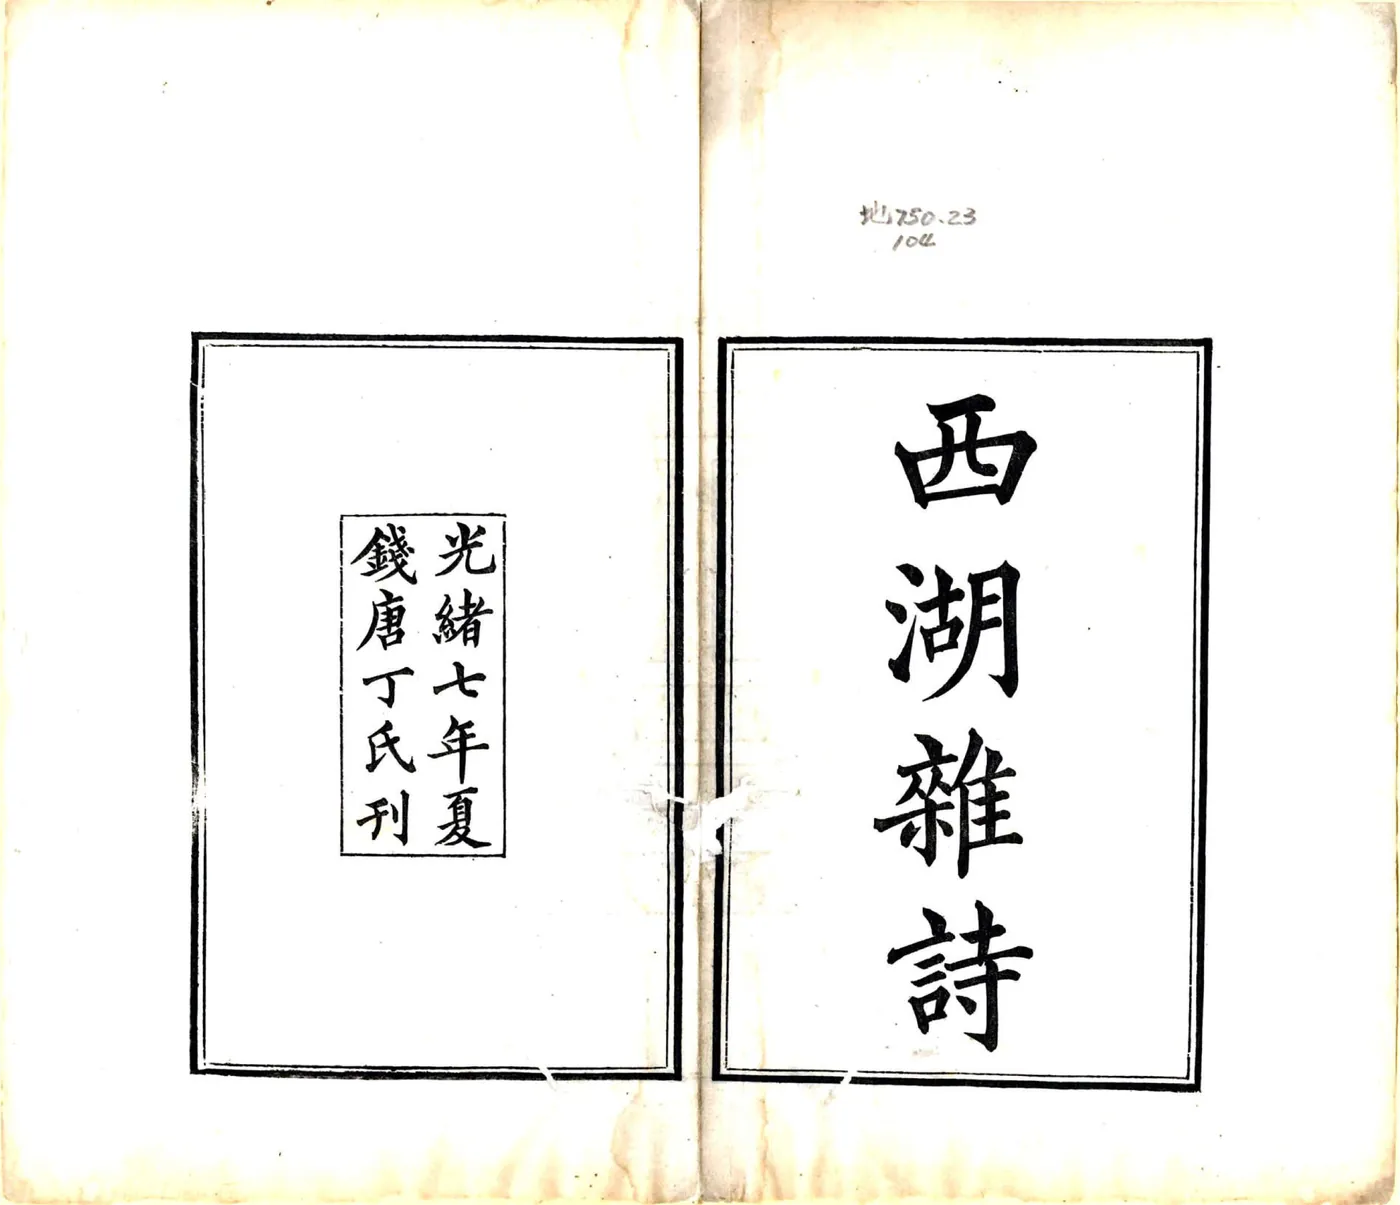 地750.23
104
西湖雜詩
光緒七年夏
錢唐丁氏刊